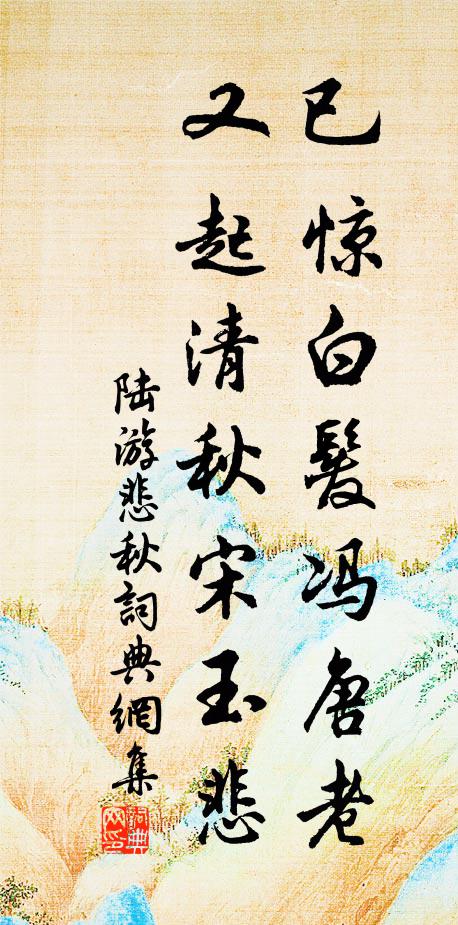 已惊白髮冯唐老
又起清秋宋玉悲
陆游悲秋詞典網集
詞典网印